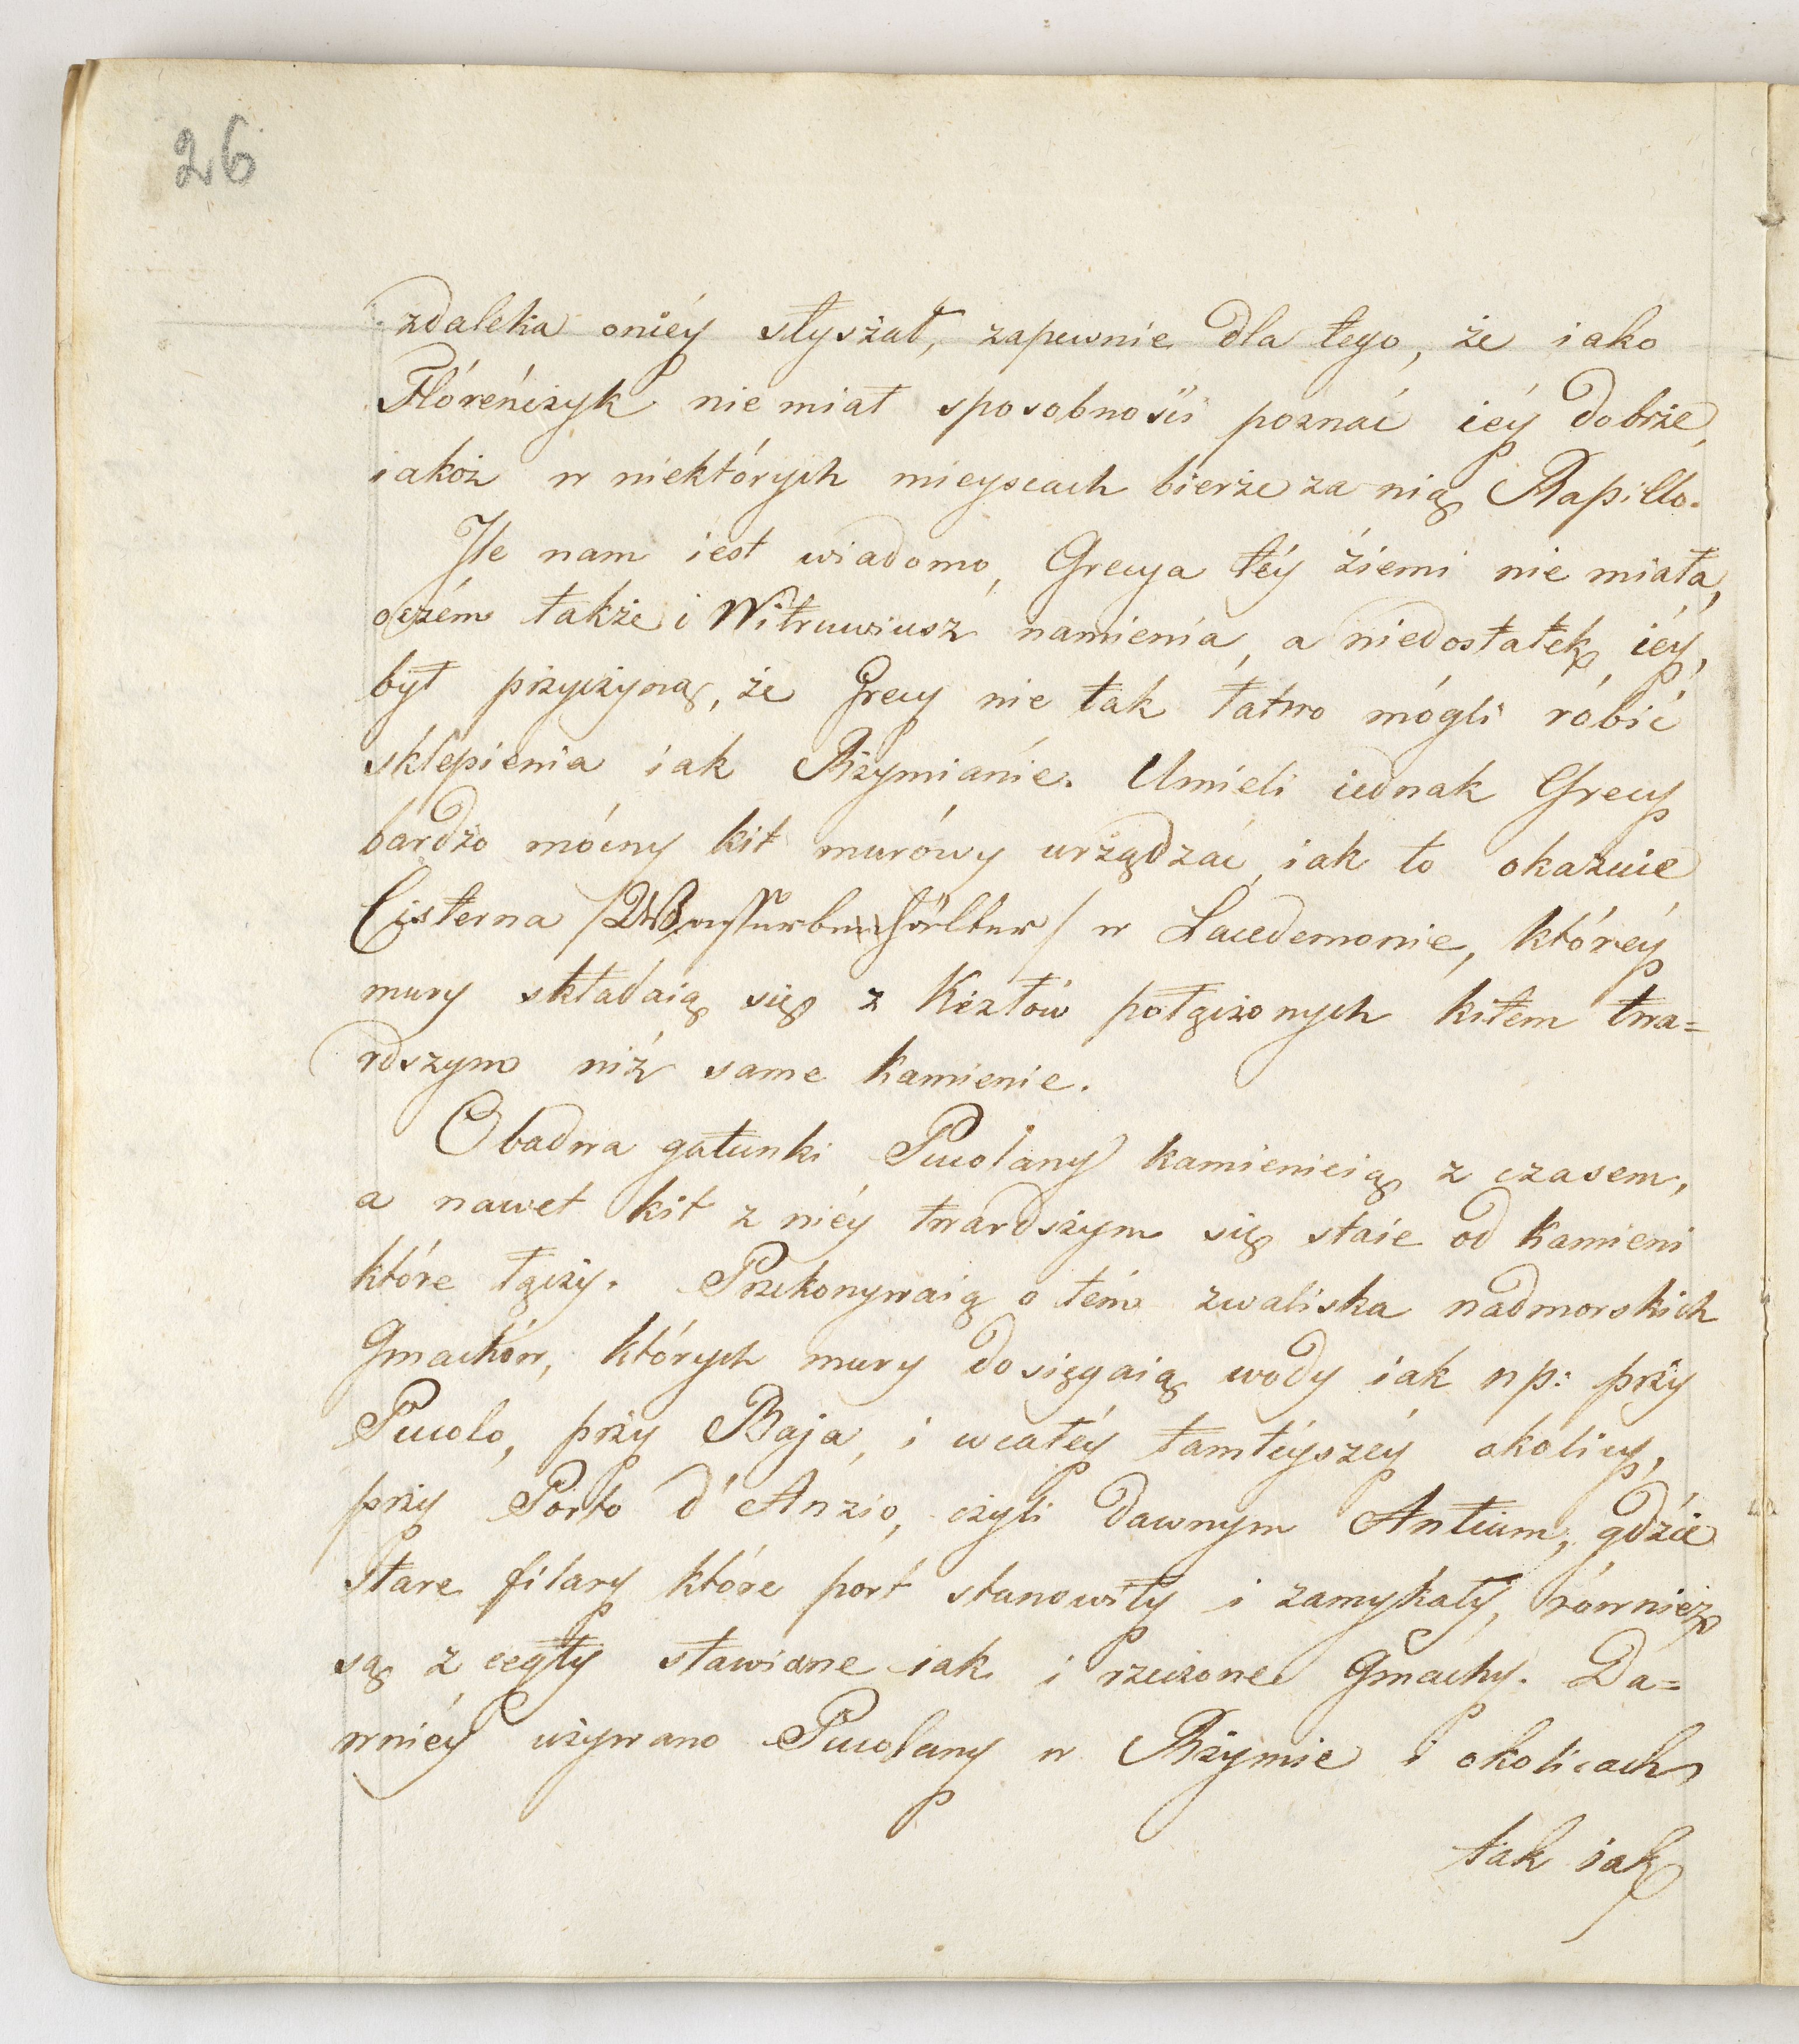 26
zdaleka oniéy słyszał, zapewnie dla tego, że iako
Flóreńczyk nie miał sposobności poznać iéy dobrze,
iakoż w niektórych mieyscach bierze za nią Rapillo.
Ile nam iest wiadomo, Grecya téy źiemi nie miała,
oczém także i Witruwiusz namienia, a niedostatek iéy,
był przyczyną, że Grecy nie tak łatwo mógli robić
sklepienia iak Rzymianie. Umieli iednak Grecy
bardzo mócny kit murówy urządzać, iak to okazuie
Cisterna / / w Lacedemonie, któréy
mury składaią się z Kizłów połączonych kitem twa=
rdszym niż same kamienie.
Obadwa gatunki Pucolany kamienieią z czasem,
a nawet kit z niéy twardszym się staie od kamieni
które łączy. Przekonywaią o tém zwaliska nadmorskich
Gmachów, których mury dosięgaią wody iak np: przy
Pucolo, przy Baja, i wcałéy tamtéyszéy okolicy,
przy Porto d'Anzio, czyli dawnym Antium, gdzie
stare filary które port stanowiły i zamykały, również
są z cegły stawiane iak i rzeczone Gmachy. Da=
wniéy używano Pucolany w Rzymie i okolicach
tak iak